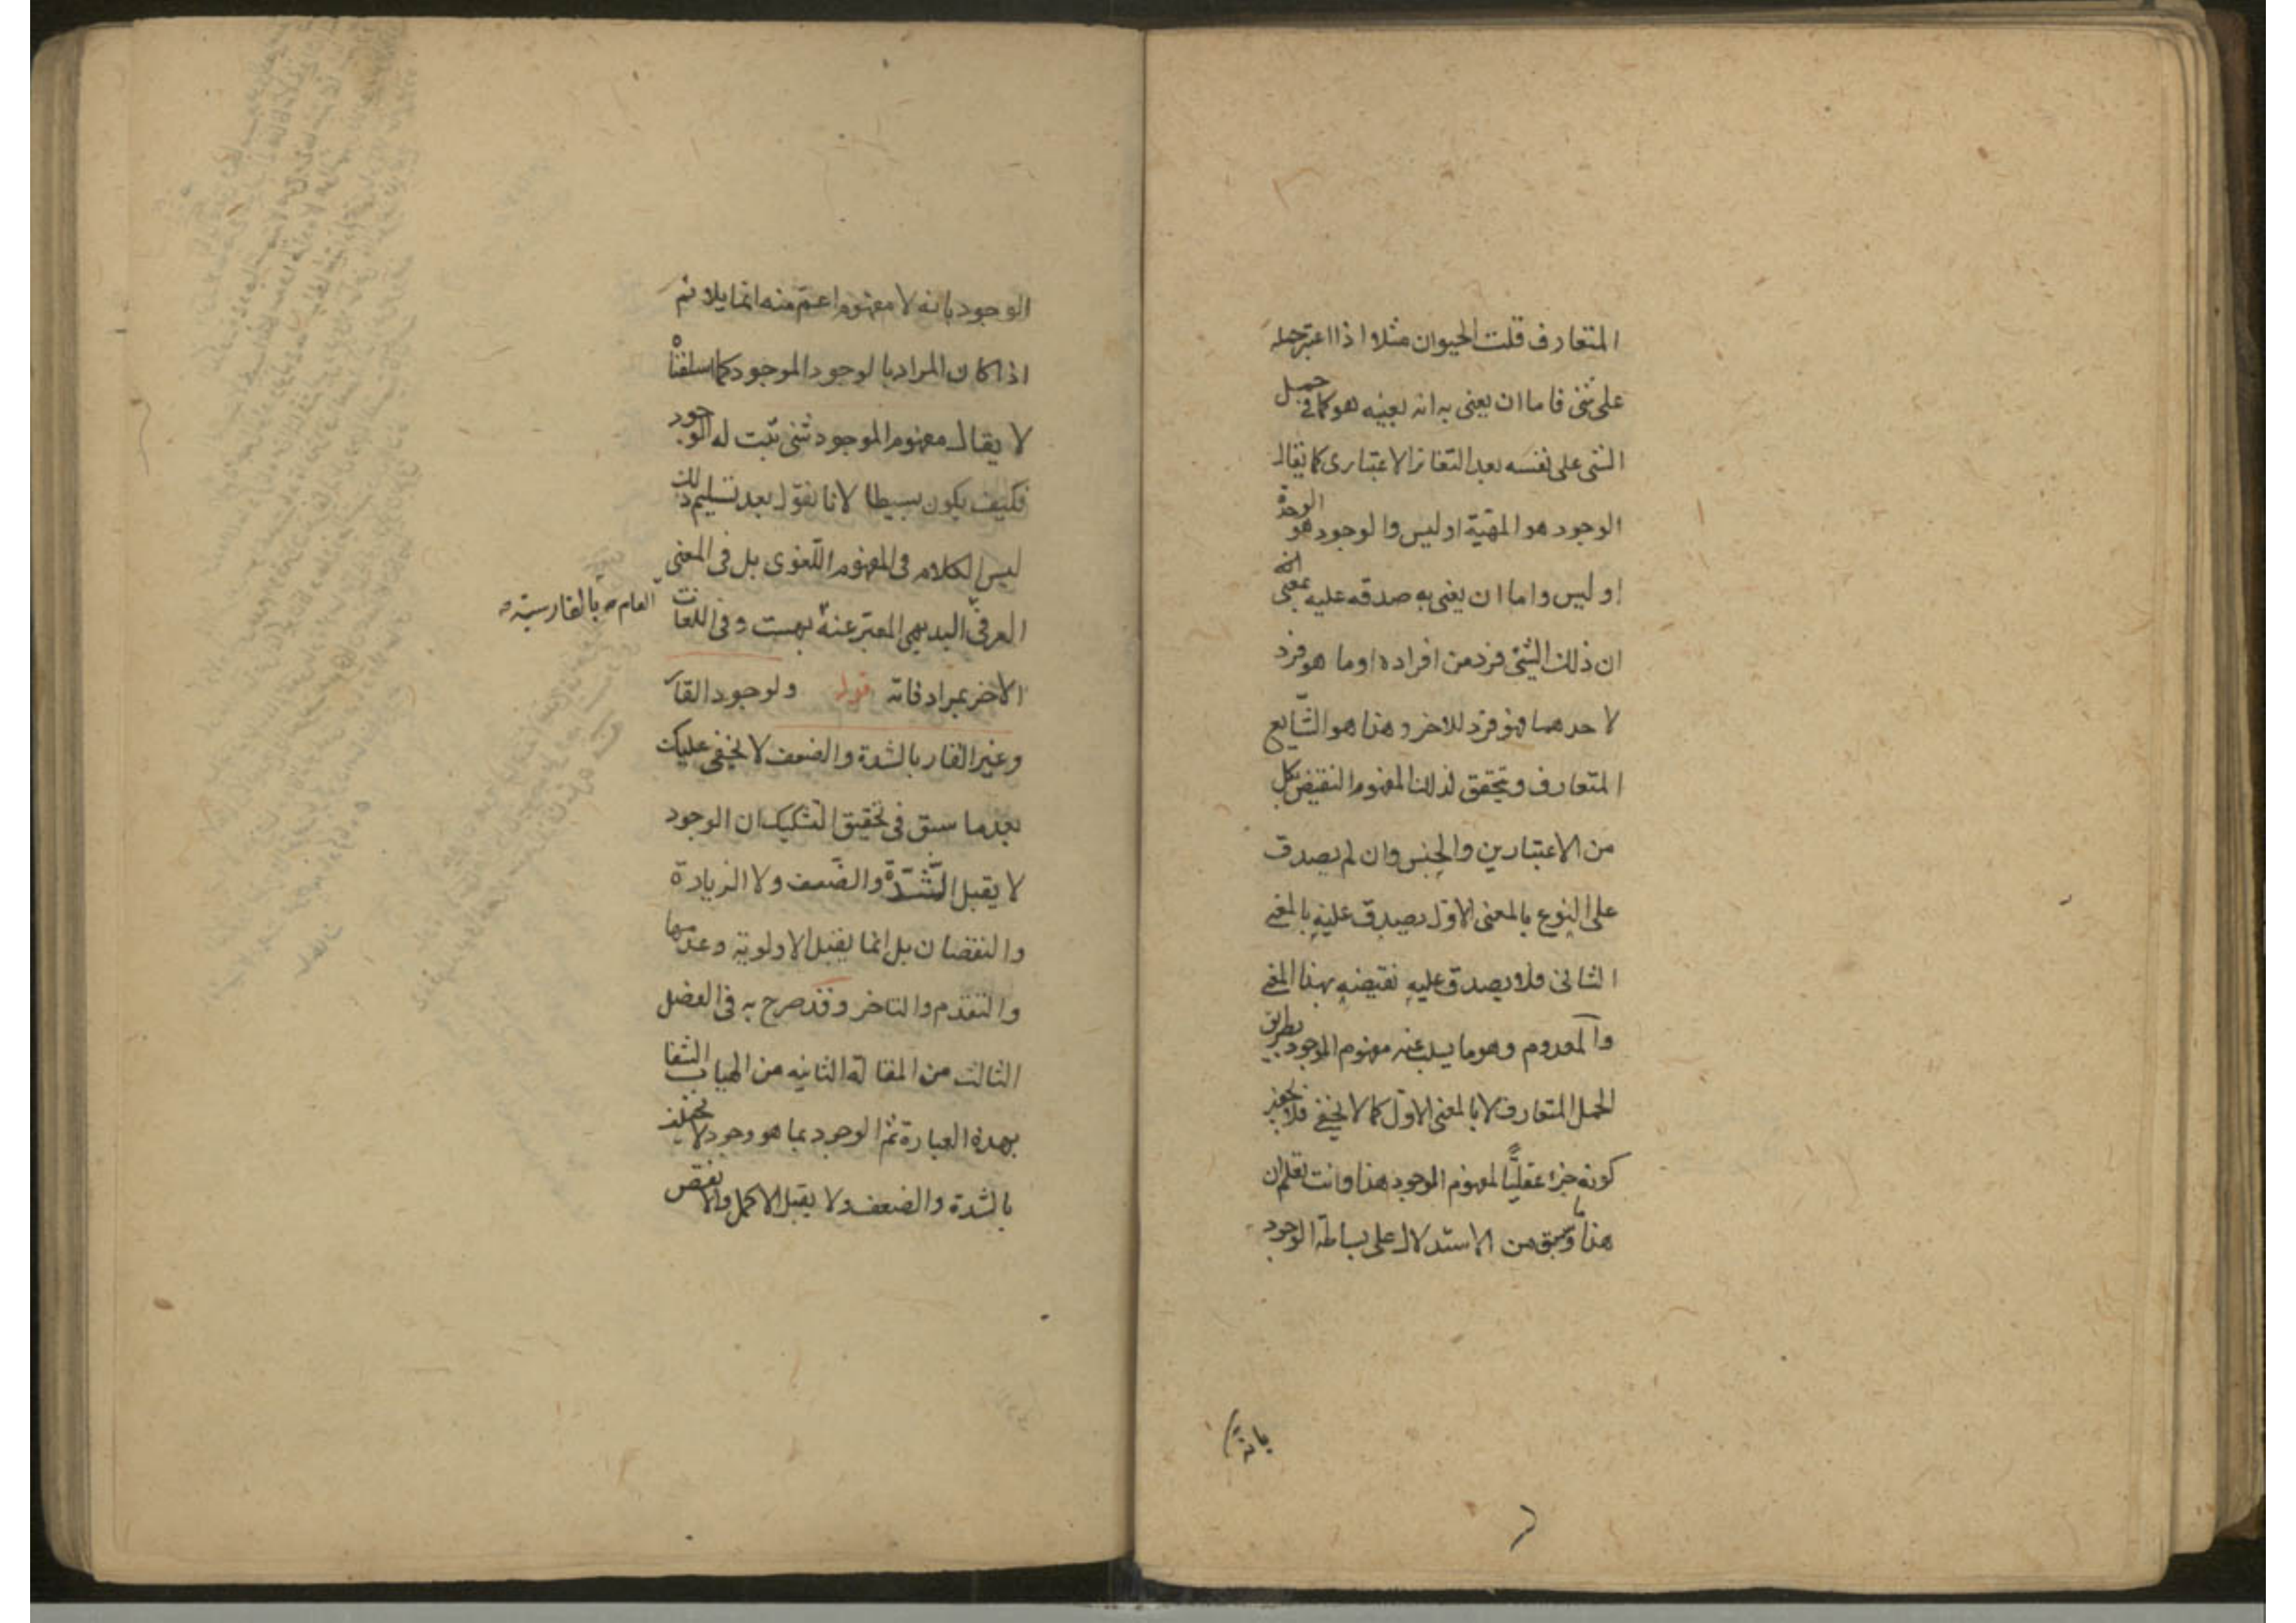 المتعارف قلت الحيوان مثلا اذا اعتبر حمله
على شئ فاما ان يعنى به انه بعينه هو كما فى حمل
الشئ على نفسه بعد التغاير الاعتبارى كما يقال
الوجود هو المهيّة او ليس والوجود هو الوحدة
او ليس واما ان يعنى به صدقه عليه بمعنى انه
ان ذلك الشئ فرد من افراده او ما هو فرد
لاحدهما فهو فرد للاخر وهذا هو الشّايع
المتعارف ويتحقق لذلك المفهوم النقيض بكل
من الاعتبارين والجنس وان لم يصدق
على النوع بالمعنى الاول يصدق عليه بالمعنى
الثانى فلا يصدق عليه نقيضه بهذا المعنى
والمعدوم وهو ما يسلب عنه مفهوم الموجود بطريق
الحمل المتعارف لا بالمعنى الاول كما لا يخفى فلا
كونه جزء عقليّاً لمفهوم الموجود هذا وانت تعلم ان
هذا وما سبق من الاستدلال على بساطة الوجود
بانه
الوجود بانه لا مفهوم اعمّ منه انما يلائم
اذا كان المراد بالوجود الموجود كما اسلفناه
لا يقال مفهوم الموجود شئ ثبت له الوجود
فكيف يكون بسيطا لانا نقول بعد تسليم ذلك
ليس الكلام فى المفهوم اللّغوى بل فى المعنى
العرفىّ البديهى المعبّر عنه بهست وفى اللغات
العام بالفارسيّة
الاخر بمرادفاته قوله ولوجود القار
وغير القار بالشدة والضعف لا يخفى عليك
بعد ما سبق فى تحقيق التشكيك ان الوجود
لا يقبل الشّدّة والضّعف ولا الزيادة
والنقصان بل انما يقبل الاولوية وعدمها
والتقدم والتاخر وقد صرح به فى الفصل
الثالث من المقالة الثانيه من الهيات الشفا
بهذه العبارة ثم الوجود بما هو وجود لا يختلف
بالشدة والضعف ولا يقبل الاكمل والانقص